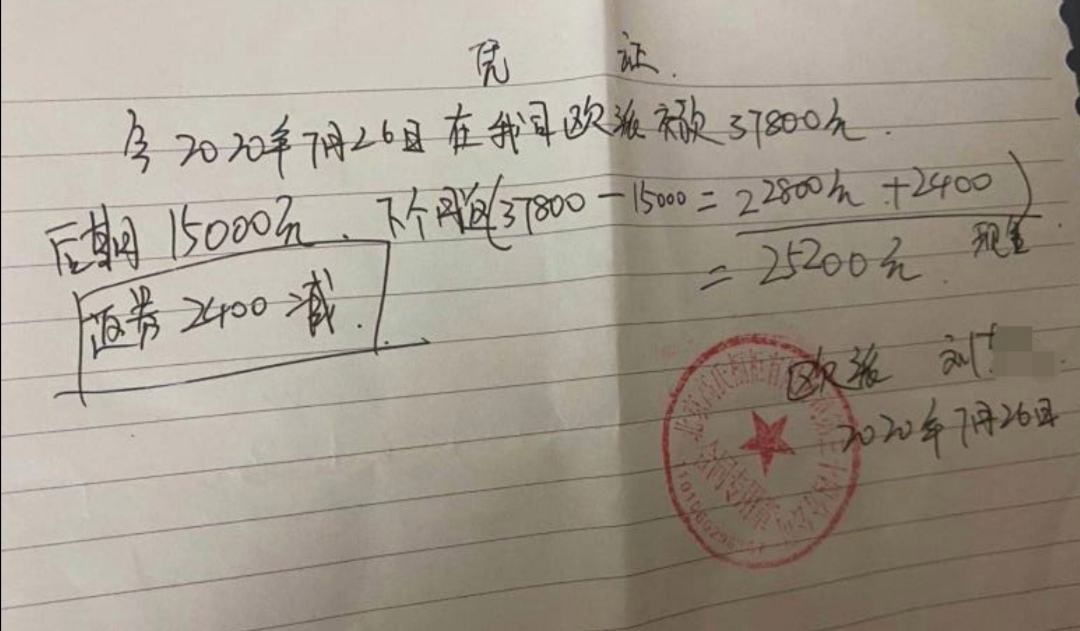 凭证.
今2020年7月26日在我司欧派 37800元.
后期15000元. 下个月返(37800-15000=22800元+2400)
=25200元. 现金
返券2400减.
欧派 刘
2020年7月26日
合同专用章